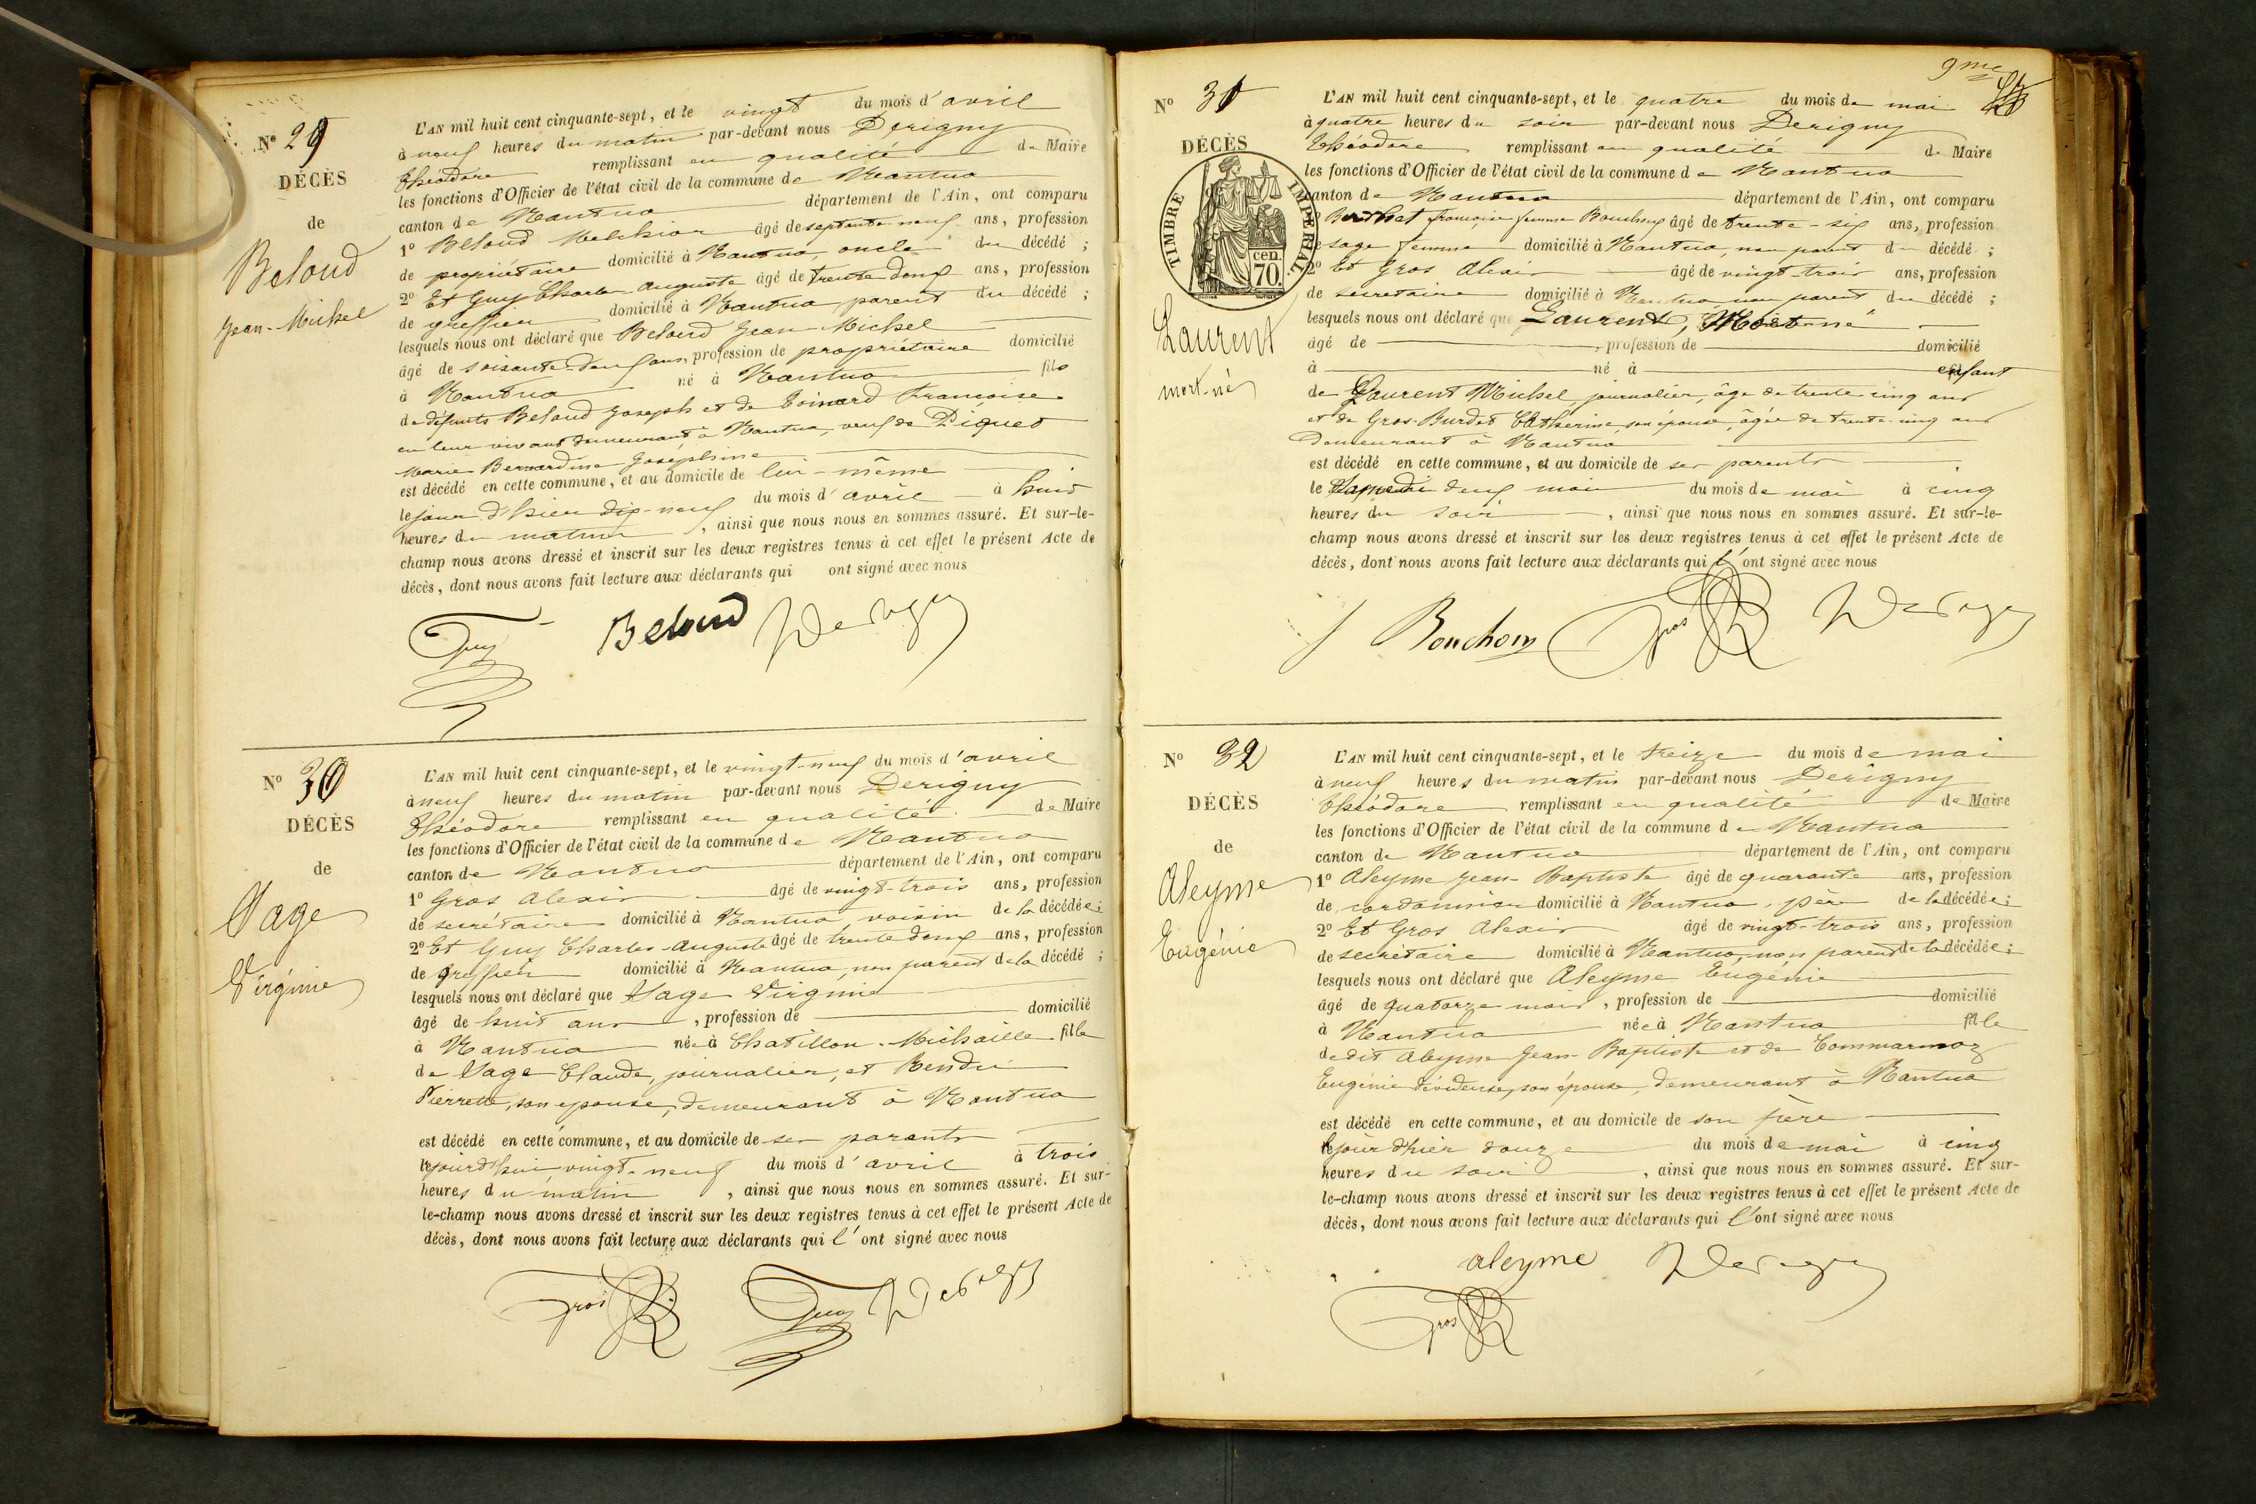 N° 29
DÉCÈS
de
Beloud
Jean-Michel
L'AN mil huit cent cinquante-sept, et le vingt du mois d'avril
à neuf heures du matin par-devant nous Derigny
Théodore remplissant en qualité de Maire
les fonctions d'Officier de l'état civil de la commune de Nantua
canton de Nantua département de l'Ain, ont comparu
1° Beloud Melchior âgé de septante neuf ans, profession
de propriétaire domicilié à Nantua, oncle du décédé ;
2° Et Guy Charles-Auguste âgé de trente deux ans, profession
de greffier domicilié à Nantua parent du décédé ;
lesquels nous ont déclaré que Beloud Jean-Michel
âgé de soixante-deux ans, profession de propriétaire domicilié
à Nantua né à Nantua fils
de défunts Beloud Joseph et de Toinard Françoise
en leur vivant demeurant à Nantua, veuf de Piquet
Marie Bernardine Joséphine
est décédé en cette commune, et au domicile de lui-même
le jour d'hier dix-neuf du mois d'avril à huit
heures du matin, ainsi que nous nous en sommes assuré. Et sur-le-
champ nous avons dressé et inscrit sur les deux registres tenus à cet effet le présent Acte de
décès, dont nous avons fait lecture aux déclarants qui ont signé avec nous
Guy Beloud Derigny
N° 30
DÉCÈS
de
Vage
Virginie
L'AN mil huit cent cinquante-sept, et le vingt-neuf du mois d'avril
à neuf heures du matin par-devant nous Derigny
Théodore remplissant en qualité de Maire
les fonctions d'Officier de l'état civil de la commune de Nantua
canton de Nantua département de l'Ain, ont comparu
1° Gros Alexis âgé de vingt-trois ans, profession
de secrétaire domicilié à Nantua voisin de la décédée ;
2° Et Guy Charles-Auguste âgé de trente deux ans, profession
de greffier domicilié à Nantua non parent de la décédé ;
lesquels nous ont déclaré que Vage Virginie
âgé de huit ans, profession de domicilié
à Nantua née à Chatillon-Michaille fille
de Vage Claude, journalier, et Rendu
Pierrette, son epouse, demeurant à Nantua
est décédé en cette commune, et au domicile de ses parents
le jourd'hui vingt-neuf du mois d'avril à trois
heures du matin, ainsi que nous nous en sommes assuré. Et sur-
le-champ nous avons dressé et inscrit sur les deux registres tenus à cet effet le présent Acte de
décès, dont nous avons fait lecture aux déclarants qui l'ont signé avec nous
Gros Guy Derigny
9me
N° 31
DÉCÈS
TIMBRE IMPERIAL.
cen.
70.
Laurent
mort-né
L'AN mil huit cent cinquante-sept, et le quatre du mois de mai
à quatre heures du soir par-devant nous Derigny
Théodore remplissant en qualité de Maire
les fonctions d'Officier de l'état civil de la commune de Nantua
canton de Nantua département de l'Ain, ont comparu
françoise femme Bouchon âgé de trente-six ans, profession
sage femme domicilié à Nantua, non parent d décédé ;
2° Et Gros Alexis âgé de vingt-trois ans, profession
de secretaire domicilié à Nantua non parent du décédé ;
lesquels nous ont déclaré que Laurent, Mort-né
âgé de , profession de domicilié
à né à enfant
de Laurent Michel, journalier, âge de trente cinq ans
et de Gros-Burdet Catherine, son épouse, âgée de trente-cinq ans
Demeurant à Nantua
est décédé en cette commune, et au domicile de ses parents
le deux mai du mois de mai à cinq
heures du soir, ainsi que nous nous en sommes assuré. Et sur-le-
champ nous avons dressé et inscrit sur les deux registres tenus à cet effet le présent Acte de
décès, dont nous avons fait lecture aux déclarants qui l'ont signé avec nous
Bouchon Gros Derigny
N° 32
DÉCÈS
de
Aleyme
Eugénie
L'AN mil huit cent cinquante-sept, et le treize du mois de mai
à neuf heures du matin par-devant nous Derigny
Théodore remplissant en qualité de Maire
les fonctions d'Officier de l'état civil de la commune de Nantua
canton de Nantua département de l'Ain, ont comparu
1° Aleyme Jean-Baptiste âgé de quarante ans, profession
de cordonnier domicilié à Nantua, père de la décédée ;
2° Et Gros Alexis âgé de vingt-trois ans, profession
de secrétaire domicilié à Nantua, non parent de la décédée ;
lesquels nous ont déclaré que Aleyme Eugénie
âgé de quatorze mois, profession de domicilié
à Nantua née à Nantua fille
de dit Aleyme Jean-Baptiste et de Commarmoz
Eugénie dévideuse, son épouse, demeurant à Nantua
est décédé en cette commune, et au domicile de son père
le jour d'hier douze du mois de mai à cinq
heures du soir, ainsi que nous nous en sommes assuré. Et sur-
le-champ nous avons dressé et inscrit sur les deux registres tenus à cet effet le présent Acte de
décès, dont nous avons fait lecture aux déclarants qui l'ont signé avec nous
aleyme Derigny
Gros